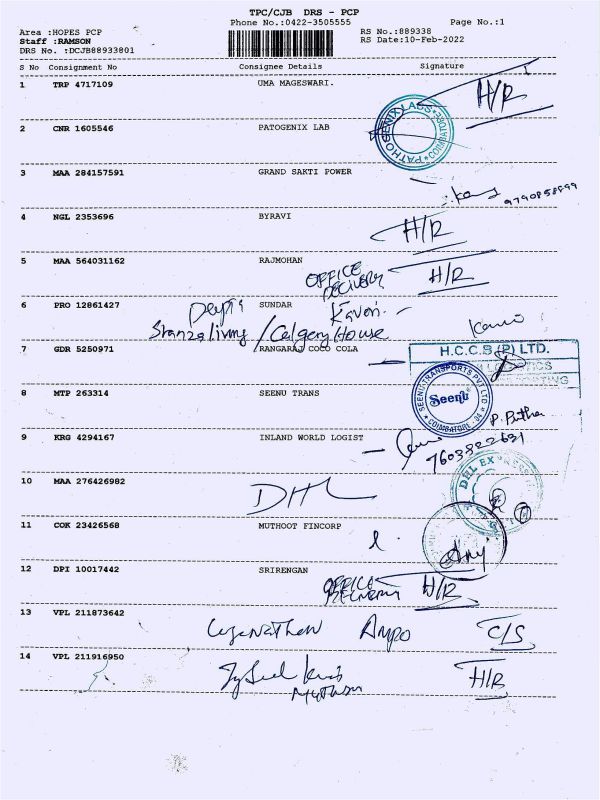 TPC/CJB DRS - PCP
Phone No.:0422-3505555 Page No.:1
Area :HOPES PCP RS No.:889338
Staff :RAMSON RS Date:10-Feb-2022
DRS No. :DCJB88933801
S No Consignment No Consignee Details Signature
1 TRP 4717109 UMA MAGESWARI. H/R
2 CNR 1605546 PATOGENIX LAB PATHOGENIX LABS COIMBATORE
3 MAA 284157591 GRAND SAKTI POWER
9790858899
4 NGL 2353696 BYRAVI H/R
5 MAA 564031162 RAJMOHAN H/R
OFFICE DELIVERY
6 PRO 12861427 SUNDAR
Stanza living / Calgary House
7 GDR 5250971 RANGARAJ COCO COLA H.C.C.B (P) LTD.
8 MTP 263314 SEENU TRANS SEENU TRANSPORTS PVT LTD Seenu COIMBATORE
9 KRG 4294167 INLAND WORLD LOGIST
7603822631
10 MAA 276426982 DHL DHL EXPRESS
11 COK 23426568 MUTHOOT FINCORP
12 DPI 10017442 SRIRENGAN H/R
OFFICE DELIVERY
13 VPL 211873642 C/S
14 VPL 211916950 H/R